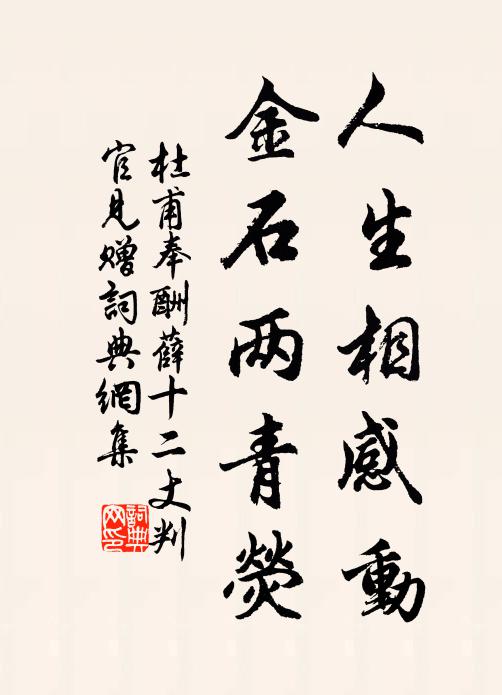 人生相感動
金石两青熒
杜甫奉酬薛十二丈判
官見贈詞典網集
詞典
网印